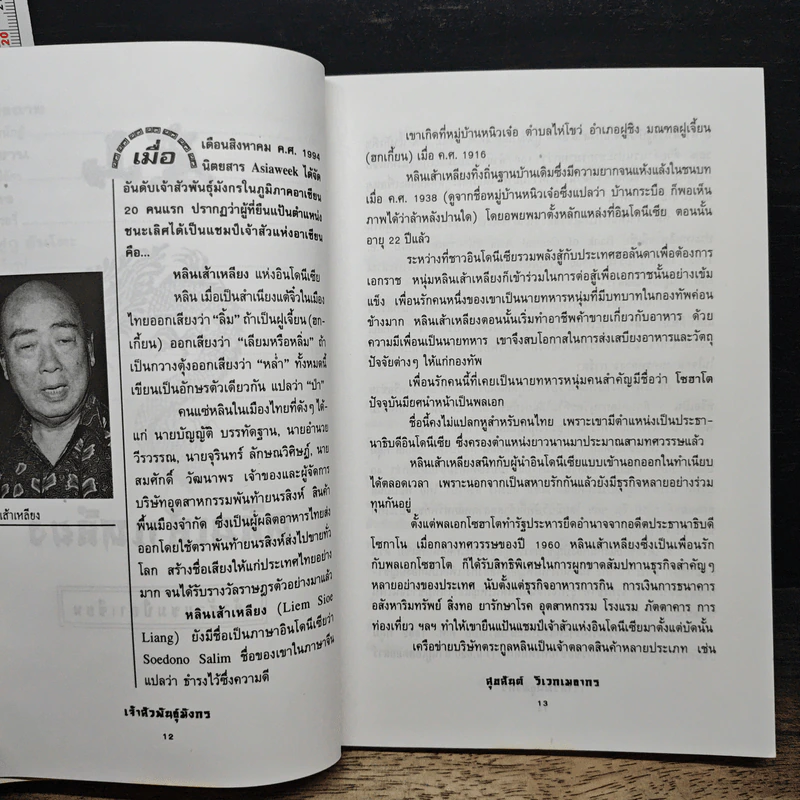 20
เมื่อ
เดือนสิงหาคม ค.ศ. 1994
นิตยสาร Asiaweek ได้จัด
อันดับเจ้าสัวพันธุ์มังกรในภูมิภาคอาเซียน
20 คนแรก ปรากฏว่าผู้ที่ยืนแป้นตำแหน่ง
ชนะเลิศได้เป็นแชมป์เจ้าสัวแห่งอาเซียน
คือ...
หลินเส้าเหลียง แห่งอินโดนีเซีย
หลิน เมื่อเป็นสำเนียงแต้จิ๋วในเมือง
ไทยออกเสียงว่า “ลิ้ม” ถ้าเป็นฝูเจี้ยน (ฮก-
เกี้ยน) ออกเสียงว่า “เลียมหรือหลิ่ม” ถ้า
เป็นกวางตุ้งออกเสียงว่า “หล่ำ” ทั้งหมดนี้
เขียนเป็นอักษรตัวเดียวกัน แปลว่า “ป่า”
คนแซ่หลินในเมืองไทยที่ดังๆ ได้-
แก่ นายบัญญัติ บรรทัดฐาน, นายอำนวย
วีรวรรณ, นายจุรินทร์ ลักษณวิศิษฏ์, นาย
สมศักดิ์ วัฒนาพร เจ้าของและผู้จัดการ
บริษัทอุตสาหกรรมพันท้ายนรสิงห์ สินค้า
พื้นเมืองจำกัด ซึ่งเป็นผู้ผลิตอาหารไทยส่ง
ออกโดยใช้ตราพันท้ายนรสิงห์ส่งไปขายทั่ว
โลก สร้างชื่อเสียงให้แก่ประเทศไทยอย่าง
มาก จนได้รับรางวัลราษฎรตัวอย่างมาแล้ว
หลินเส้าเหลียง (Liem Sioe
Liang) ยังมีชื่อเป็นภาษาอินโดนีเซียว่า
Soedono Salim ชื่อของเขาในภาษาจีน
แปลว่า ธำรงไว้ซึ่งความดี
เส้าเหลียง
เจ้าสัวพันธุ์มังกร
12
เขาเกิดที่หมู่บ้านหนิวเจ๋อ ตำบลไห่โขว่ อำเภอฝูชิง มณฑลฝูเจี้ยน
(ฮกเกี้ยน) เมื่อ ค.ศ. 1916
หลินเส้าเหลียงทิ้งถิ่นฐานบ้านเดิมซึ่งมีความยากจนแห้งแล้งในชนบท
เมื่อ ค.ศ. 1938 (ดูจากชื่อหมู่บ้านหนิวเจ๋อซึ่งแปลว่า บ้านกระบือ ก็พอเห็น
ภาพได้ว่าล้าหลังปานใด) โดยอพยพมาตั้งหลักแหล่งที่อินโดนีเซีย ตอนนั้น
อายุ 22 ปีแล้ว
ระหว่างที่ชาวอินโดนีเซียรวมพลังสู้กับประเทศฮอลันดาเพื่อต้องการ
เอกราช หนุ่มหลินเส้าเหลียงก็เข้าร่วมในการต่อสู้เพื่อเอกราชนั้นอย่างเข้ม
แข็ง เพื่อนรักคนหนึ่งของเขาเป็นนายทหารหนุ่มที่มีบทบาทในกองทัพค่อน
ข้างมาก หลินเส้าเหลียงตอนนั้นเริ่มทำอาชีพค้าขายเกี่ยวกับอาหาร ด้วย
ความมีเพื่อนเป็นนายทหาร เขาจึงสบโอกาสในการส่งเสบียงอาหารและวัตถุ
ปัจจัยต่างๆ ให้แก่กองทัพ
เพื่อนรักคนนี้ที่เคยเป็นนายทหารหนุ่มคนสำคัญมีชื่อว่า โซฮาโต
ปัจจุบันมียศนำหน้าเป็นพลเอก
ชื่อนี้คงไม่แปลกหูสำหรับคนไทย เพราะเขามีตำแหน่งเป็นประธา-
นาธิบดีอินโดนีเซีย ซึ่งครองตำแหน่งยาวนานมาประมาณสามทศวรรษแล้ว
หลินเส้าเหลียงสนิทกับผู้นำอินโดนีเซียแบบเข้านอกออกในทำเนียบ
ได้ตลอดเวลา เพราะนอกจากเป็นสหายรักกันแล้วยังมีธุรกิจหลายอย่างร่วม
ทุนกันอยู่
ตั้งแต่พลเอกโซฮาโตทำรัฐประหารยึดอำนาจจากอดีตประธานาธิบดี
โซกาโน เมื่อกลางทศวรรษของปี 1960 หลินเส้าเหลียงซึ่งเป็นเพื่อนรัก
กับพลเอกโซฮาโต ก็ได้รับสิทธิพิเศษในการผูกขาดสัมปทานธุรกิจสำคัญๆ
หลายอย่างของประเทศ นับตั้งแต่ธุรกิจอาหารการกิน การเงินการธนาคาร
อสังหาริมทรัพย์ สิ่งทอ ยารักษาโรค อุตสาหกรรม โรงแรม ภัตตาคาร การ
ท่องเที่ยว ฯลฯ ทำให้เขายืนแป้นแชมป์เจ้าสัวแห่งอินโดนีเซียมาตั้งแต่บัดนั้น
เครือข่ายบริษัทตระกูลหลินเป็นเจ้าตลาดสินค้าหลายประเภท เช่น
สุขสันต์ วิเวกเมธากร
13